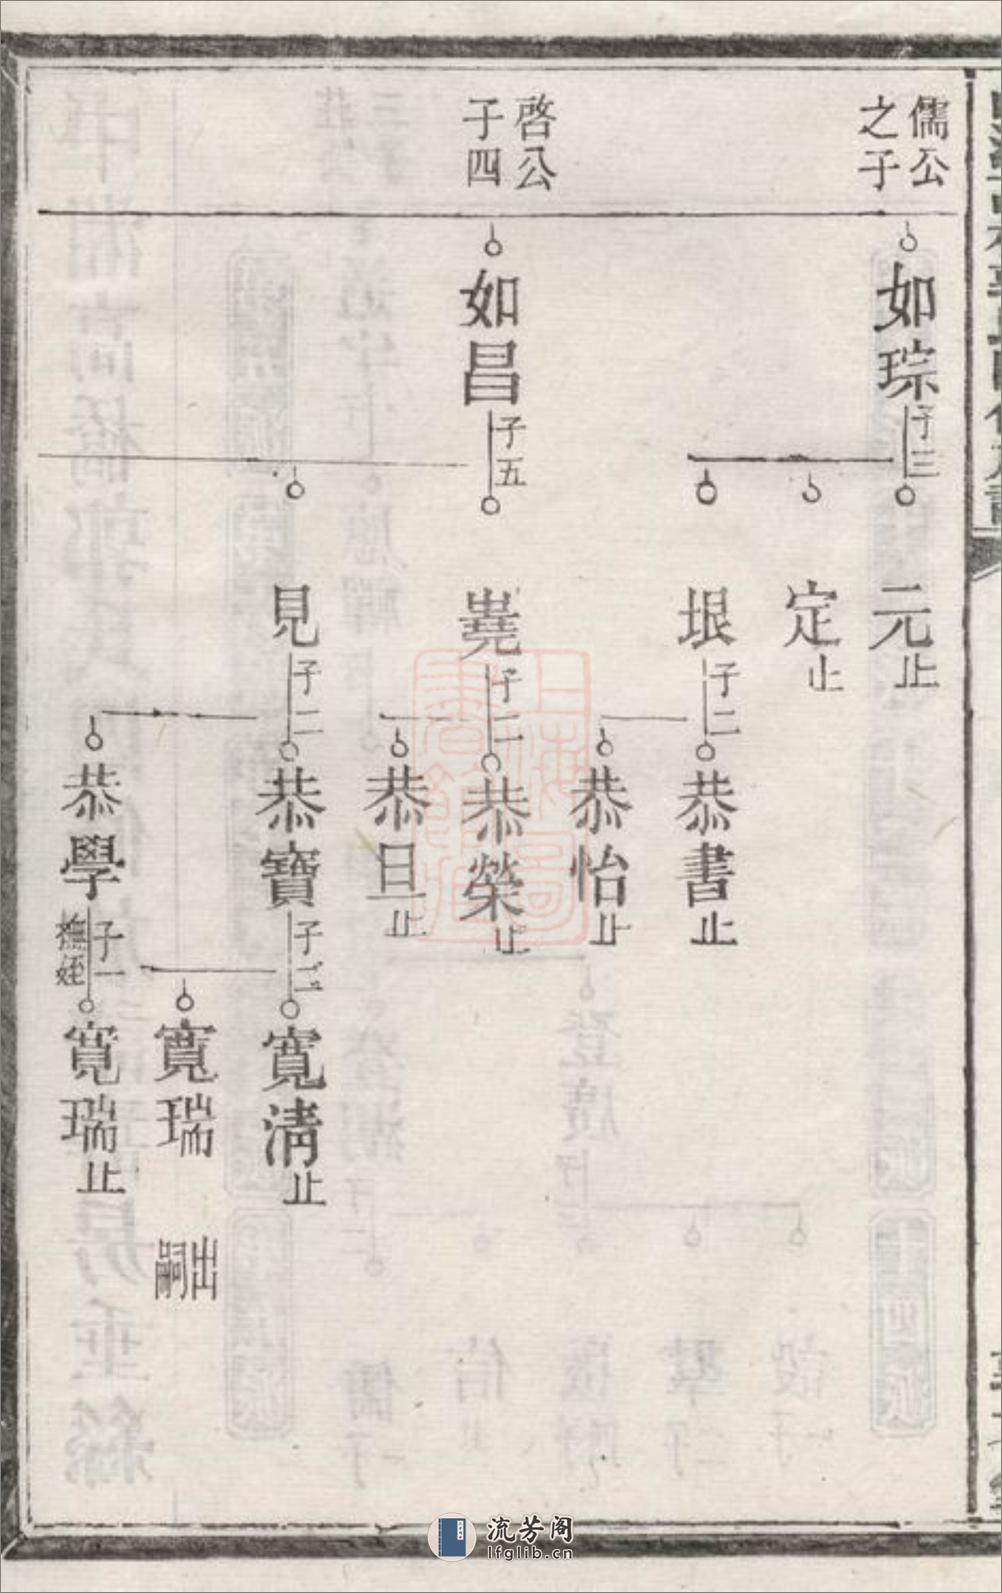 儒公
之子
如琮
子三
元止
定止
垠子二
恭書止
恭怡止
啓公
子四
如昌
子五
嶤子二
恭榮止
恭旦止
見子二
恭寶子二
寬清止
寬瑞
出嗣
恭學子一
撫姪
寬瑞止
流芳阁
lfglib.cn